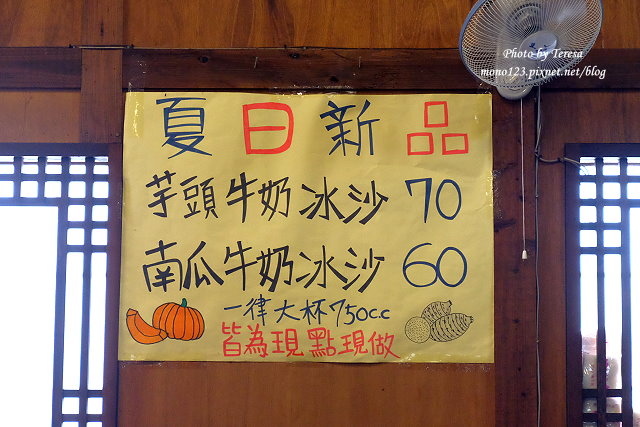 Photo by Teresa
mono123.pixnet.net/blog
夏日新品
芋頭牛奶冰沙 70
南瓜牛奶冰沙 60
一律大杯750c.c
皆為現點現做